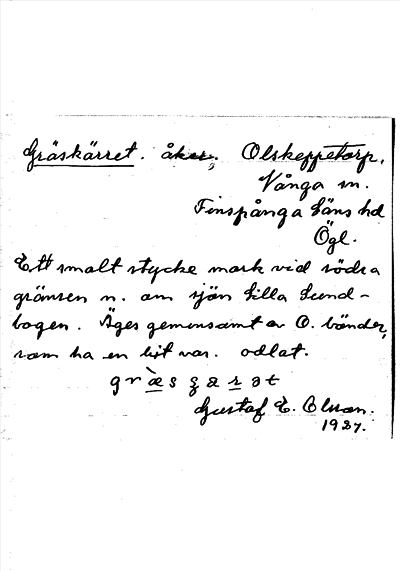 Gräskärret. åker, Olskeppetorp,
Vånga sn.
Finspånga läns hd
Ögl.
Ett smalt stycke mark vid södra
gränsen n. om sjön Lilla Lund-
bogen. Äges gemensamt av O. bönder,
som ha en bit var. odlat.
Gustaf E. Olsson.
1927.